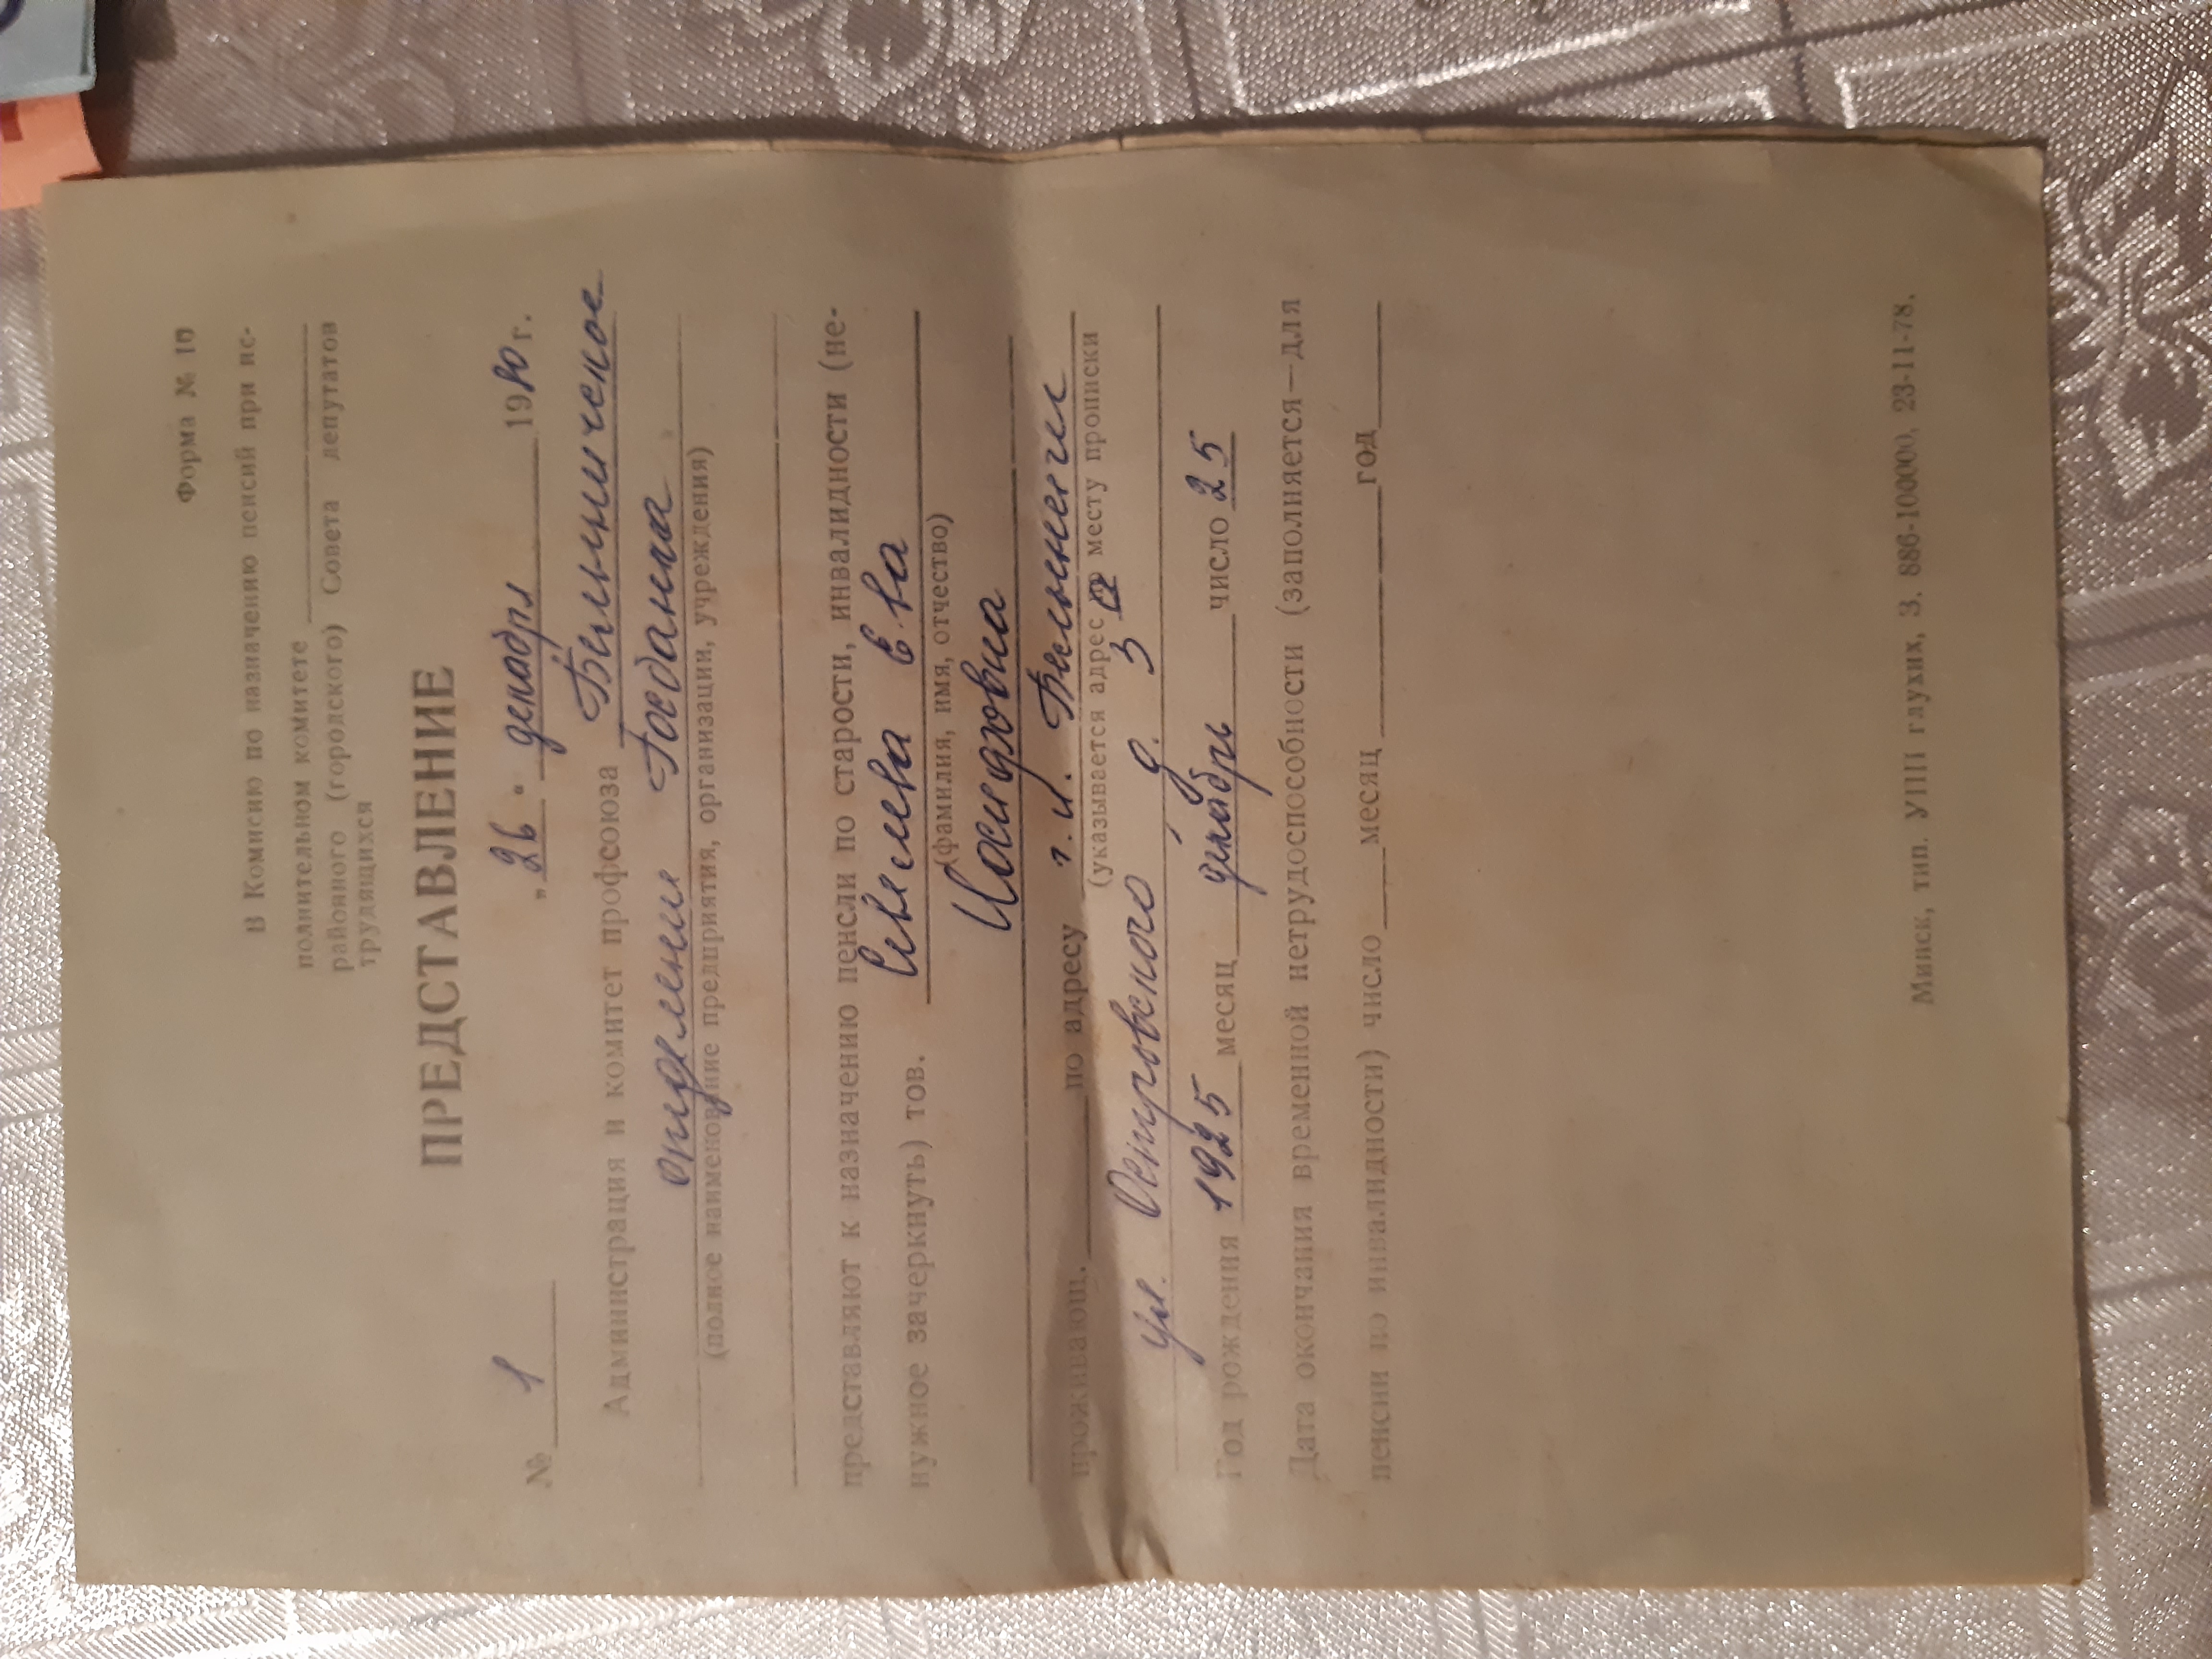 Форма № 10
В Комисию по назначению пенсий при ис-
полнительном комитете
районного (городского) Совета депутатов
трудящихся
ПРЕДСТАВЛЕНИЕ
№ 1 „26“ декабря 1980 г.
Администрация и комитет профсоюза
отделение Госбанка
(полное наименование предприятия, организации, учреждения)
представляют к назначению пенсии по старости, инвалидности (не-
нужное зачеркнуть) тов. Ева
(фамилия, имя, отчество)
Иосифовна
проживающ. по адресу г.п.
(указывается адрес по месту прописки
ул. Островского д. 3
Год рождения 1925 месяц декабрь число 25
Дата окончания временной нетрудоспособности (заполняется—для
пенсии по инвалидности) число месяц год
Минск, тип. УПП глухих, З. 886-100000, 23-11-78.